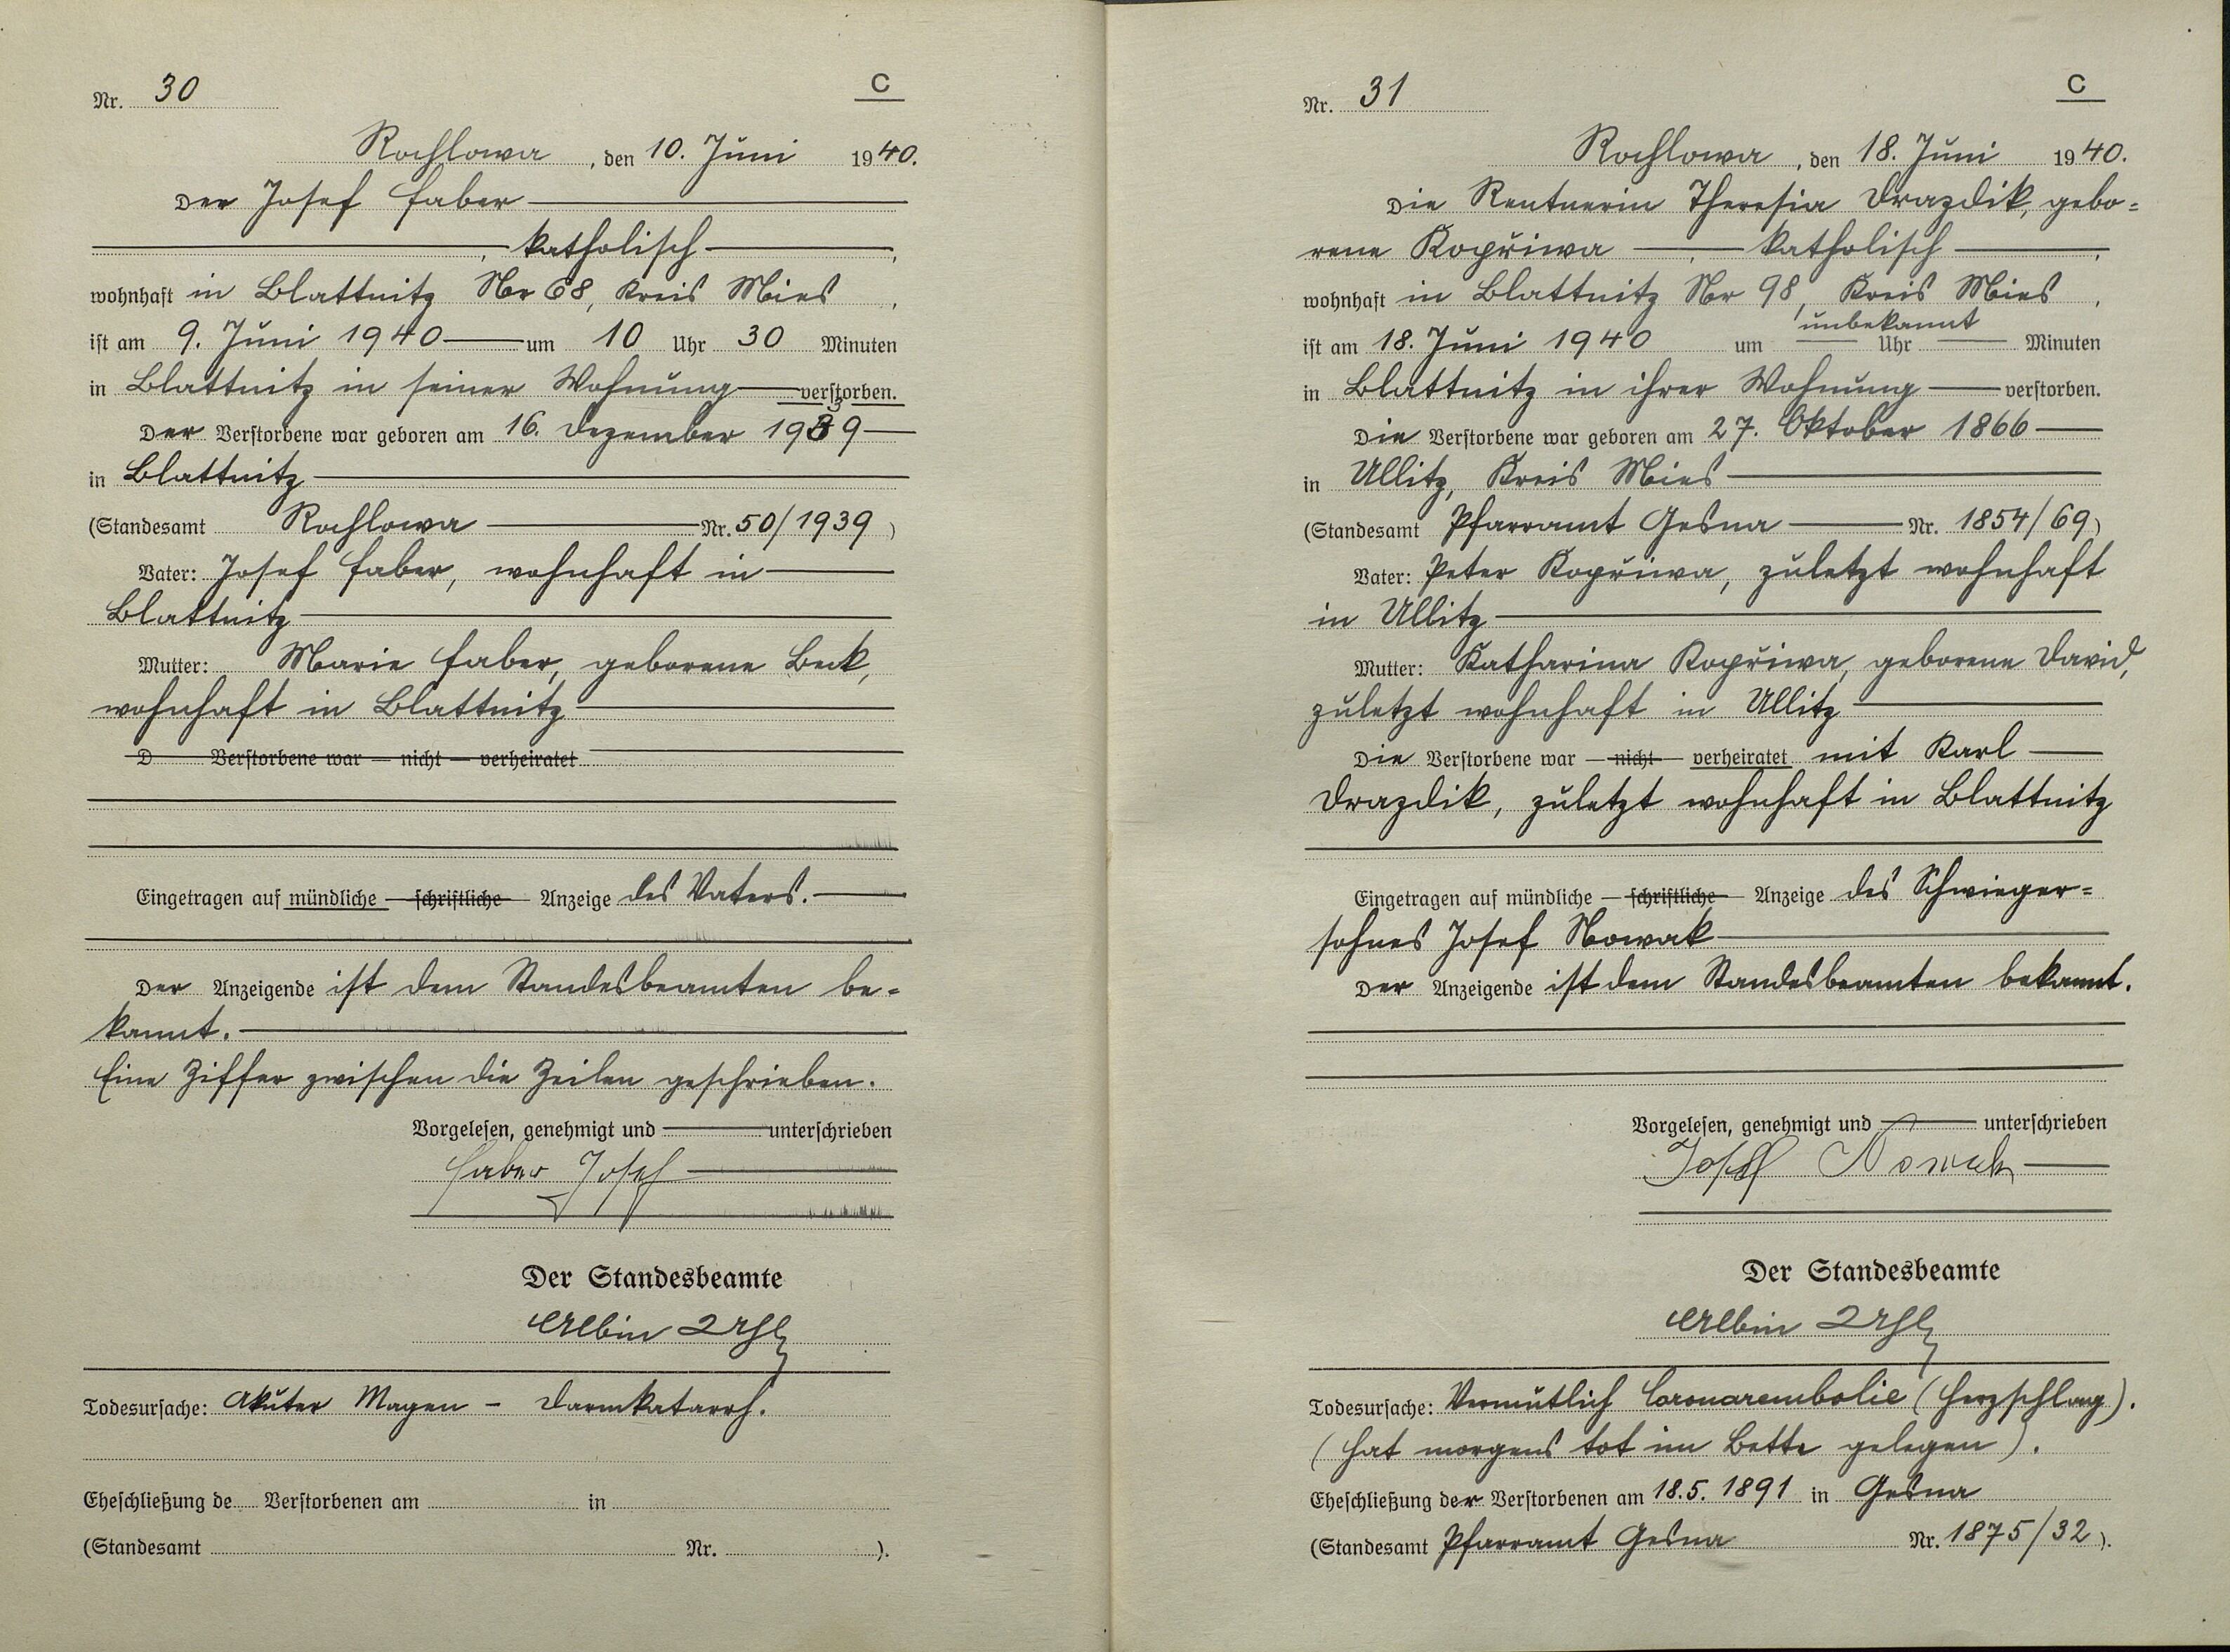 Nr. 30
C
Rochlowa, den 10. Juni 1940.
Der Josef Faber
, katholisch,
wohnhaft in Blattnitz Nr 68, Kreis Mies,
ist am 9. Juni 1940 um 10 Uhr 30 Minuten
in Blattnitz in seiner Wohnung verstorben.
3
Der Verstorbene war geboren am 16. Dezember 1989
in Blattnitz
(Standesamt Rochlowa Nr. 50/1939)
Vater: Josef Faber, wohnhaft in
Blattnitz
Mutter: Marie Faber, geborene Beck,
wohnhaft in Blattnitz
D Verstorbene war — nicht — verheiratet
Eingetragen auf mündliche — schriftliche — Anzeige des Vaters.
Der Anzeigende ist dem Standesbeamten be-
kannt.
Eine Ziffer zwischen die Zeilen geschrieben.
Vorgelesen, genehmigt und unterschrieben
Faber Josef
Der Standesbeamte
Albin
Todesursache: Akuter Magen - Darmkatarrh.
Eheschließung de Verstorbenen am in
(Standesamt Nr. ).
Nr. 31
C
Rochlowa, den 18. Juni 1940.
Die Rentnerin Theresia Drazdik, gebo-
rene Kopřiwa, katholisch,
wohnhaft in Blattnitz Nr 98, Kreis Mies,
unbekannt
ist am 18. Juni 1940 um Uhr Minuten
in Blattnitz in ihrer Wohnung verstorben.
Die Verstorbene war geboren am 27. Oktober 1866
in Ullitz, Kreis Mies
(Standesamt Pfarramt Gesna Nr. 1854/69)
Vater: Peter Kopřiwa, zuletzt wohnhaft
in Ullitz
Mutter: Katharina Kopřiwa, geborene David,
zuletzt wohnhaft in Ullitz
Die Verstorbene war — nicht — verheiratet mit Karl
Drazdik, zuletzt wohnhaft in Blattnitz
Eingetragen auf mündliche — schriftliche — Anzeige des Schwieger-
sohnes Josef Nowak
Der Anzeigende ist dem Standesbeamten bekannt.
Vorgelesen, genehmigt und unterschrieben
Josef Nowak
Der Standesbeamte
Albin
Todesursache: Vermutlich Coronarembolie (Herzschlag).
(hat morgens tot im Bette gelegen).
Eheschließung der Verstorbenen am 18.5.1891 in Gesna
(Standesamt Pfarramt Gesna Nr. 1875/32).